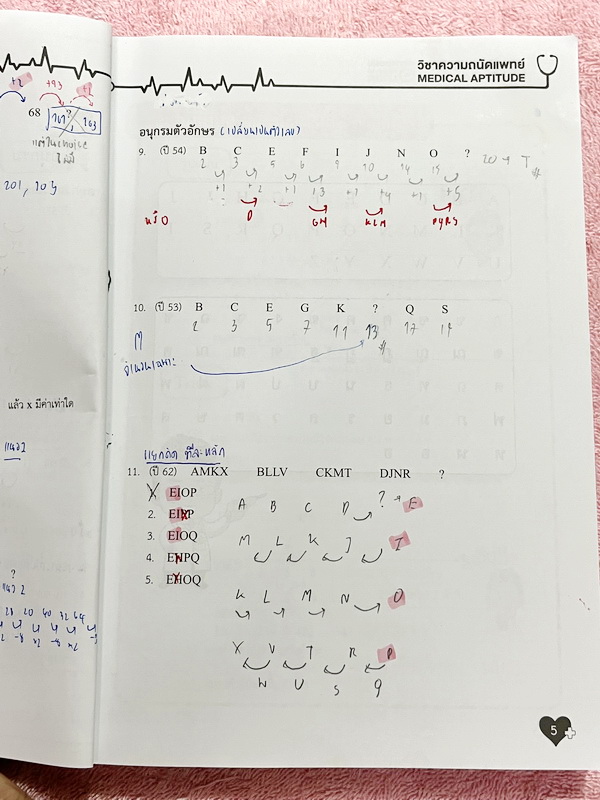 วิชาความถนัดแพทย์
MEDICAL APTITUDE
+2 +93 +2
68 101? 103
แต่ในchoice
ไม่มี
201, 103
อนุกรมตัวอักษร (เปลี่ยนเป็นตัวเลข)
9. (ปี 54) B C E F I J N O ? 20 → T
2 3 5 6 9 10 14 15
+1 +2 +1 +3 +1 +4 +1 +5
หรือ D GH KLM PQRS
10. (ปี 53) B C E G K ? Q S
2 3 5 7 11 13 17 19
จำนวนเฉพาะ
แล้ว x มีค่าเท่าใด
แยกคิด ทีละหลัก
11. (ปี 62) AMKX BLLV CKMT DJNR ?
1. EIOP
2. EIRP
3. EIOQ
4. EHPQ
5. EHOQ
A B C D ? → E
M L K J I
K L M N O
X V T R P
W U S Q
?
28 20 40 32 64
5